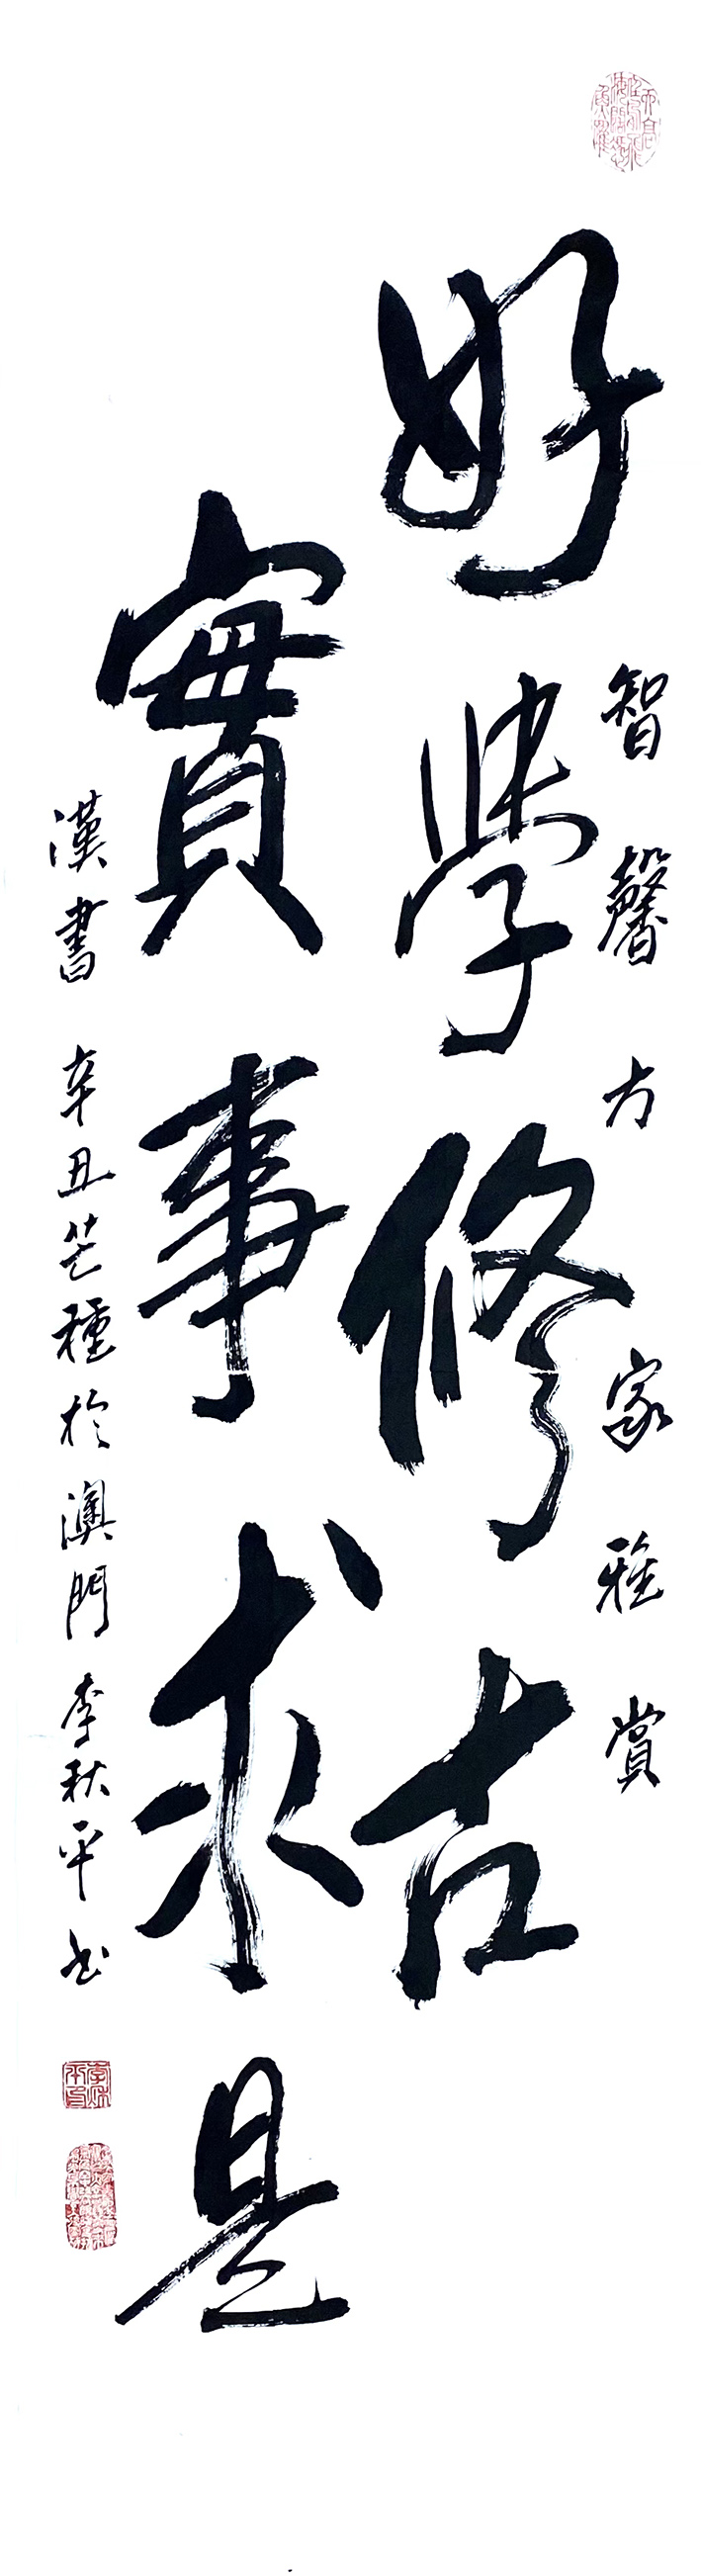 智馨方家雅賞
好學修古
實事求是
漢書 辛丑芒種於澳門 李秋平书